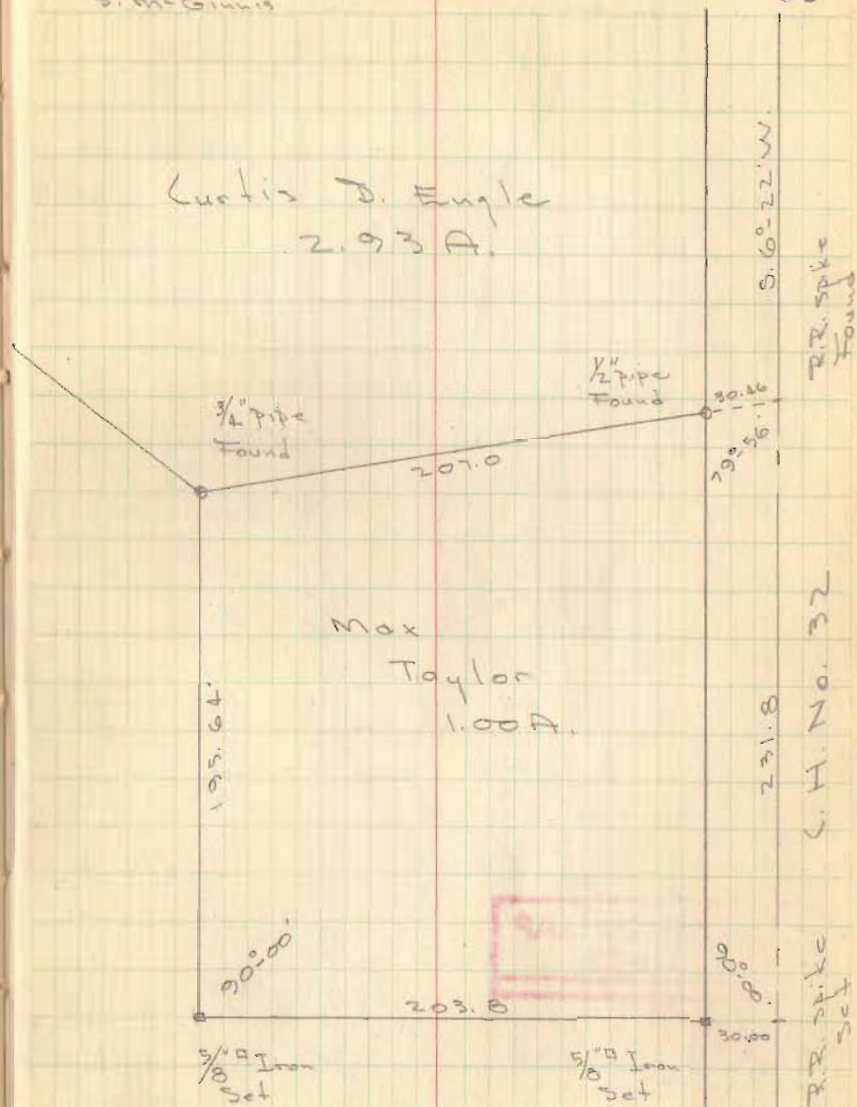 McGinnis
Curtis D. Engle
2.93 A.
S. 6°-22' W.
R.R. Spike
Found
1/2" pipe
Found
30.46
3/4" pipe
Found
79°-56'
207.0
Max
Taylor
1.00 A.
195.64'
231.8
C. H. No. 32
90°-00'
90°-00'
203.8
30.00
5/8" □ Iron
Set
5/8" □ Iron
Set
R.R. Spike
Set